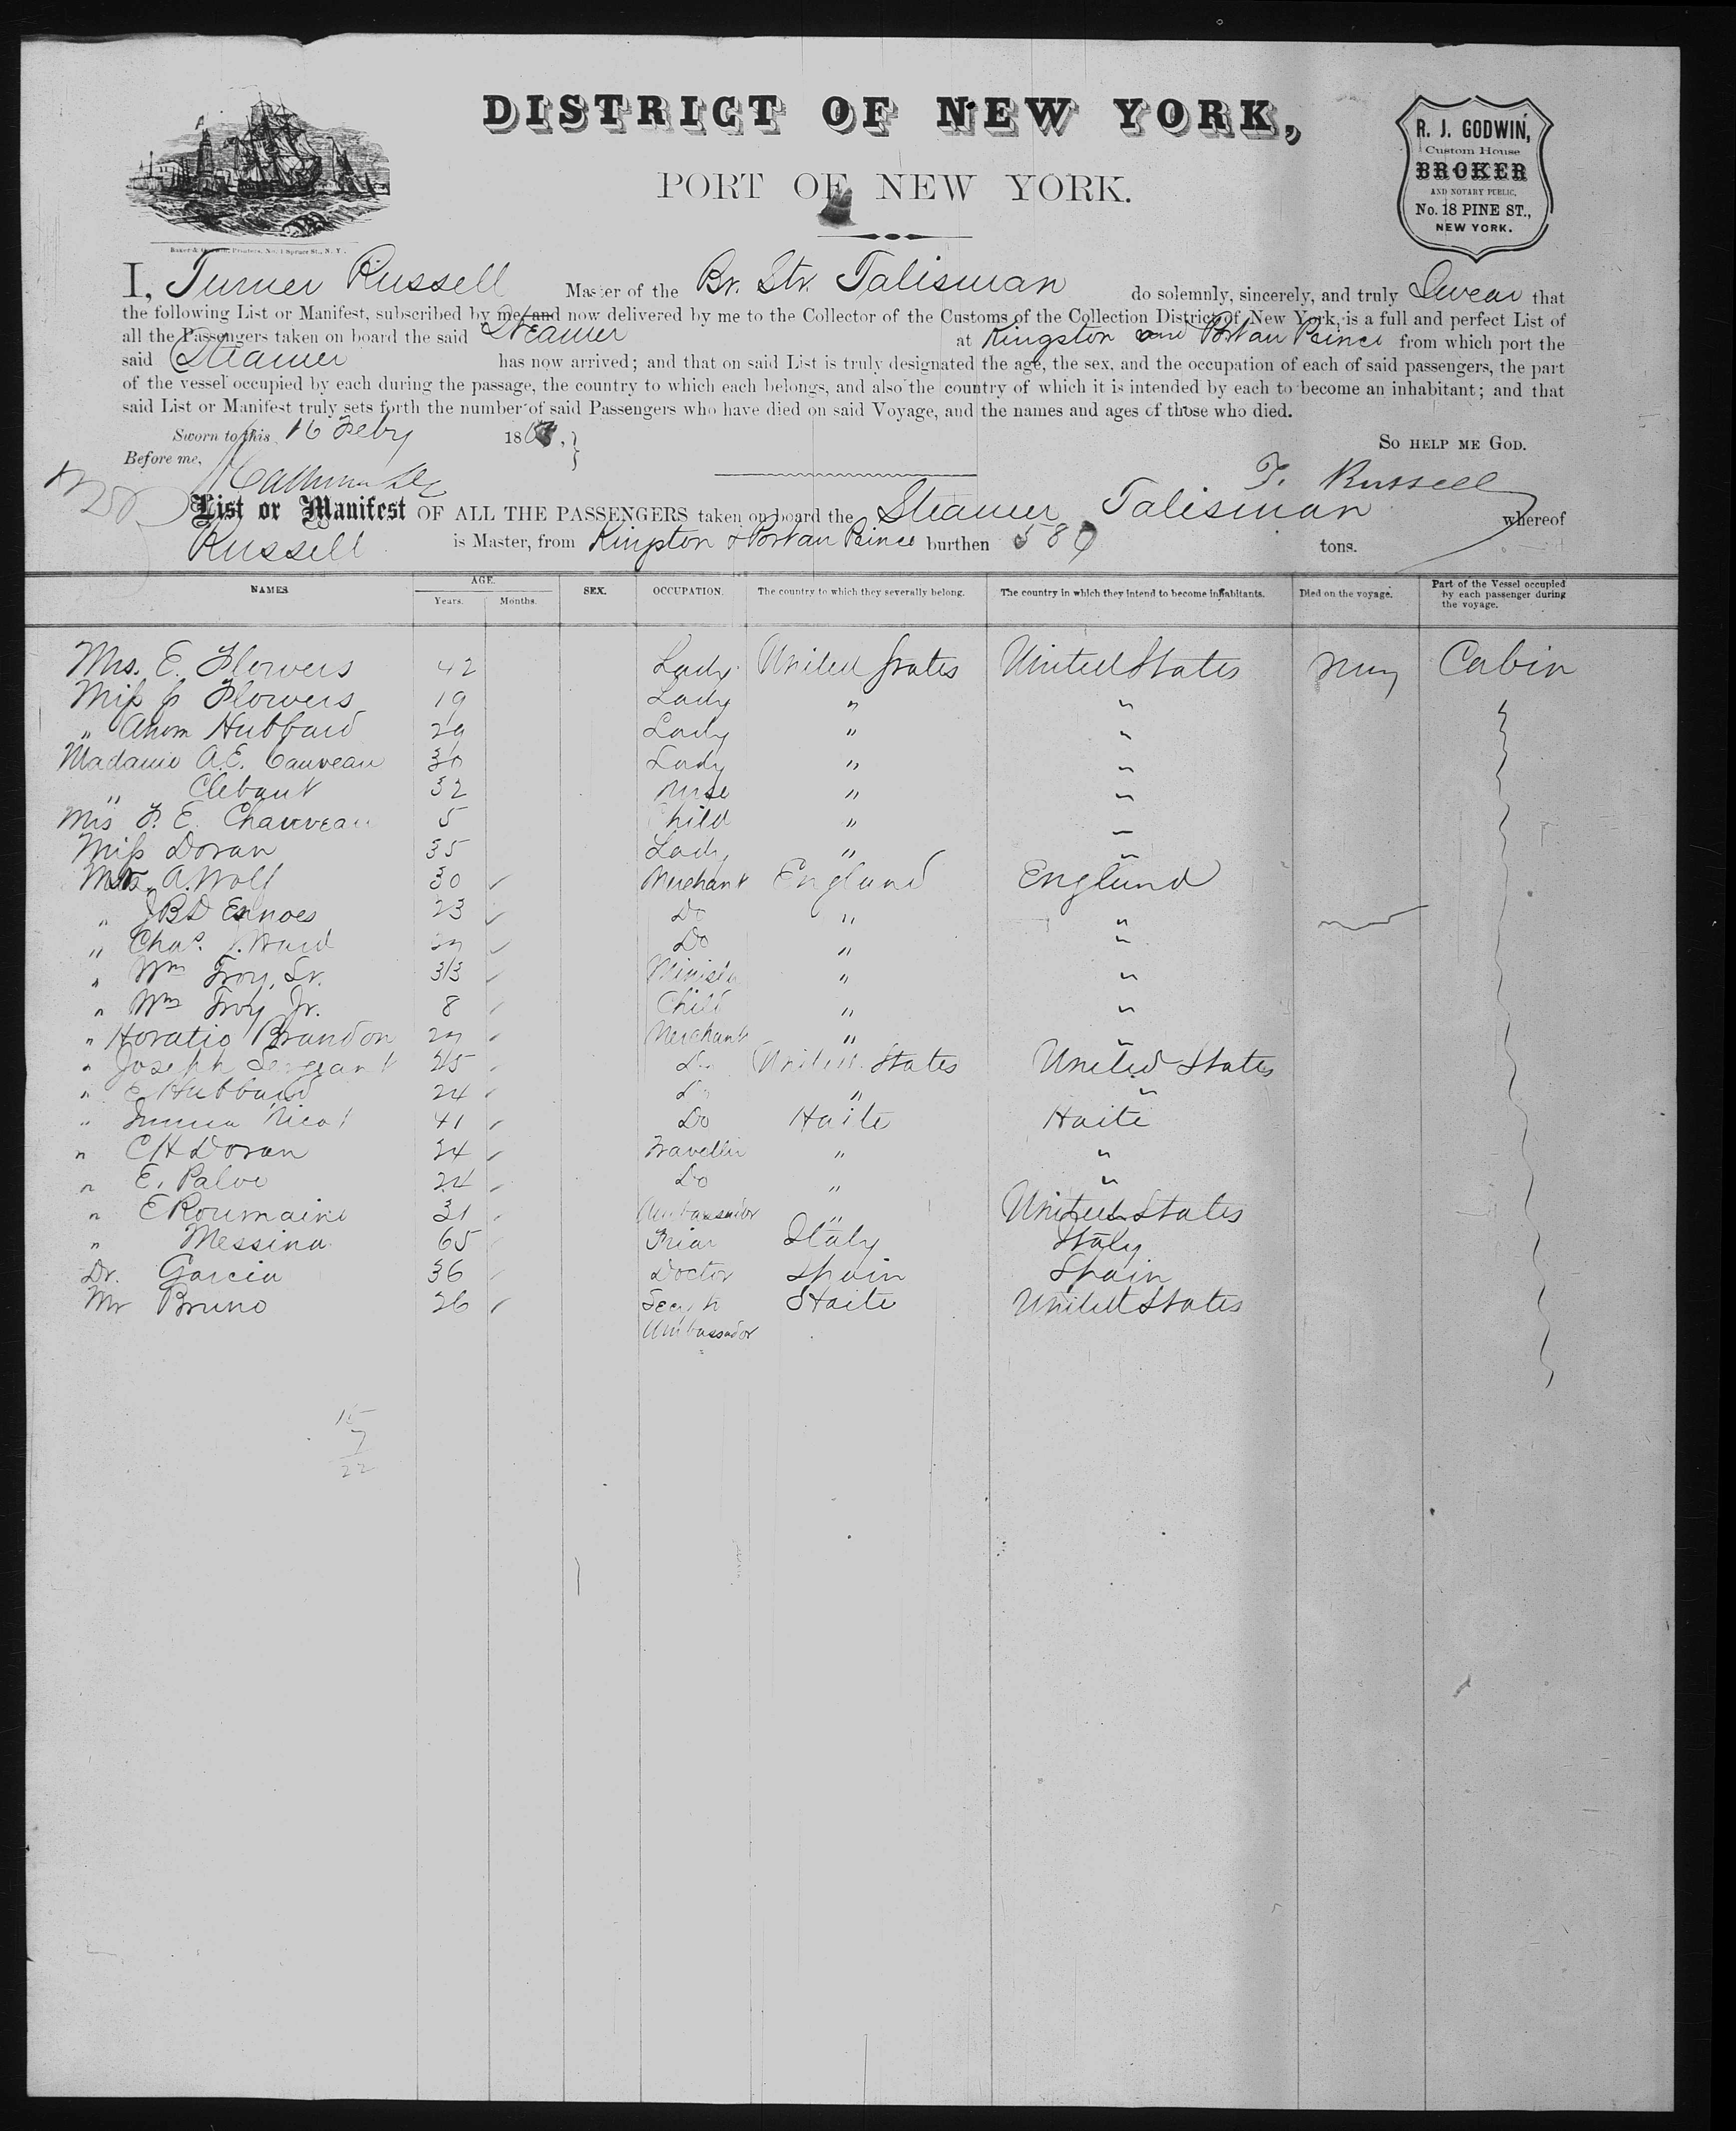 DISTRICT OF NEW YORK,
PORT OF NEW YORK.
R. J. GODWIN,
Custom House
BROKER
AND NOTARY PUBLIC,
No. 18 PINE ST.,
NEW YORK.
I, Turner Russell Master of the Br. Str. Talisman do solemnly, sincerely, and truly Swear that
the following List or Manifest, subscribed by me, and now delivered by me to the Collector of the Customs of the Collection District of New York, is a full and perfect List of
all the Passengers taken on board the said Steamer at Kingston and Port au Prince from which port the
said Steamer has now arrived; and that on said List is truly designated the age, the sex, and the occupation of each of said passengers, the part
of the vessel occupied by each during the passage, the country to which each belongs, and also the country of which it is intended by each to become an inhabitant; and that
said List or Manifest truly sets forth the number of said Passengers who have died on said Voyage, and the names and ages of those who died.
Sworn to this 16 Feby 186 , SO HELP ME GOD.
Before me,
T. Russell
List or Manifest OF ALL THE PASSENGERS taken on board the Steamer Talisman whereof
Russell is Master, from Kingston & Port au Prince burthen 589 tons.
NAMES. AGE. Years. Months. SEX. OCCUPATION. The country to which they severally belong. The country in which they intend to become inhabitants. Died on the voyage. Part of the Vessel occupied by each passenger during the voyage.
Mrs. E. Flowers 42 Lady United States United States Cabin
Miss Flowers 19 Lady " "
" Hubbard 29 Lady " "
Madame A.E. Cauveau 30 Lady " "
" Clebant 32 Nurse " "
Mis F. E. Chauveau 5 Child " "
Miss Doran 35 Lady " "
A. Wolf 30 Merchant England England
" 23 Do " "
" Chas. Ward Do " "
" Wm Troy, Sr. 33 Minister " "
" Wm Troy Jr. 8 Child " "
" Horatio Brandon Merchant " "
" Joseph Sergeant United States United States
" E Hubbard 24 " "
" 41 Do Haite Haite
" CH Doran 34 Traveller " "
" E. Palvo 24 Do " "
" E Roumaine 31 Ambassador " United States
" Messina 65 Friar Italy Italy
Dr. Garcia 36 Doctor Spain Spain
Mr Bruno 26 Haite United States
Ambassador
15
7
22